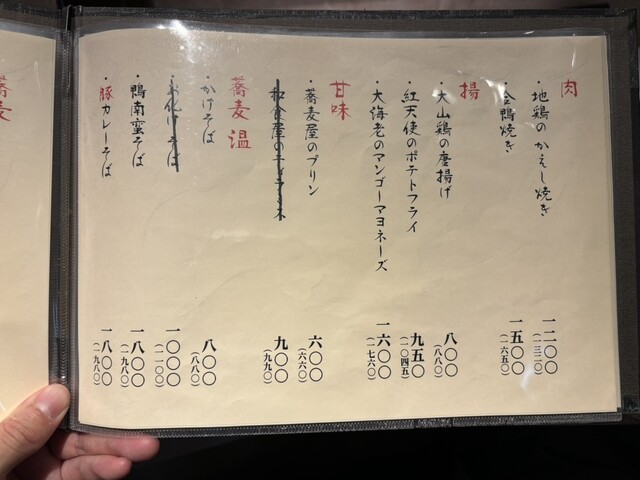 肉
・地鶏のかえし焼き 一二〇〇 (一三二〇)
・合鴨焼き 一五〇〇 (一六五〇)
揚
・大山鶏の唐揚げ 八〇〇 (八八〇)
・紅天使のポテトフライ 九五〇 (一〇四五)
・大海老のマンゴーマヨネーズ 一六〇〇 (一七六〇)
甘味
・蕎麦屋のプリン 六〇〇 (六六〇)
九〇〇 (九九〇)
蕎麦 温
・かけそば 八〇〇 (八八〇)
・お化けそば 一〇〇〇 (一一〇〇)
・鴨南蛮そば 一八〇〇 (一九八〇)
・豚カレーそば 一八〇〇 (一九八〇)
蕎麦